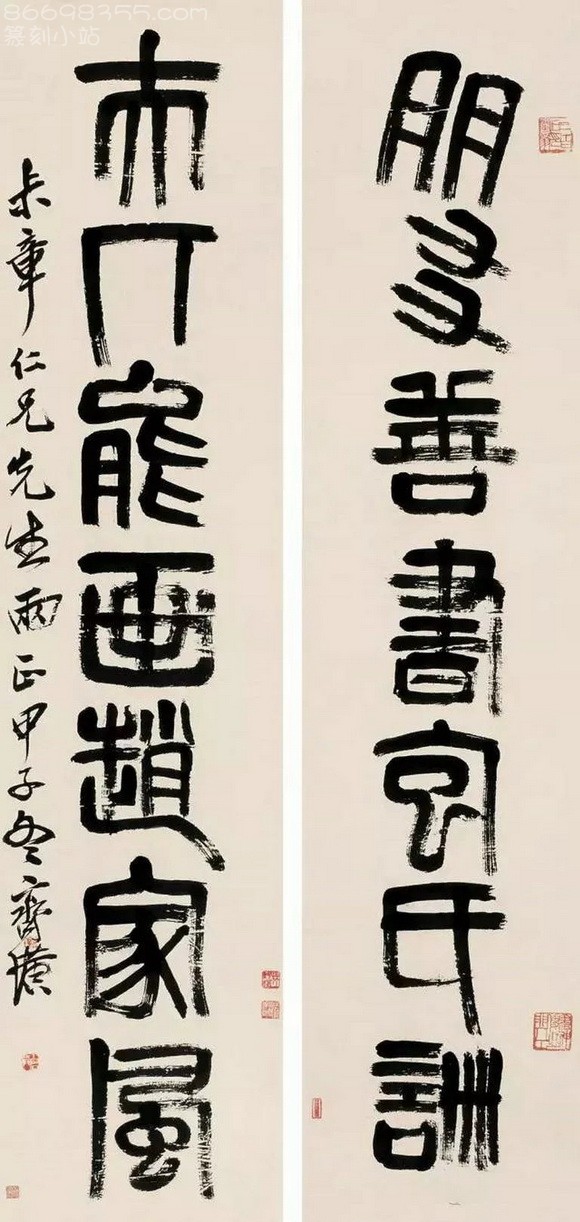 86698355.com
篆刻小站
朋友善書氏訓
夫人能画趙家風
尗章仁兄先生兩正甲子冬齊璜